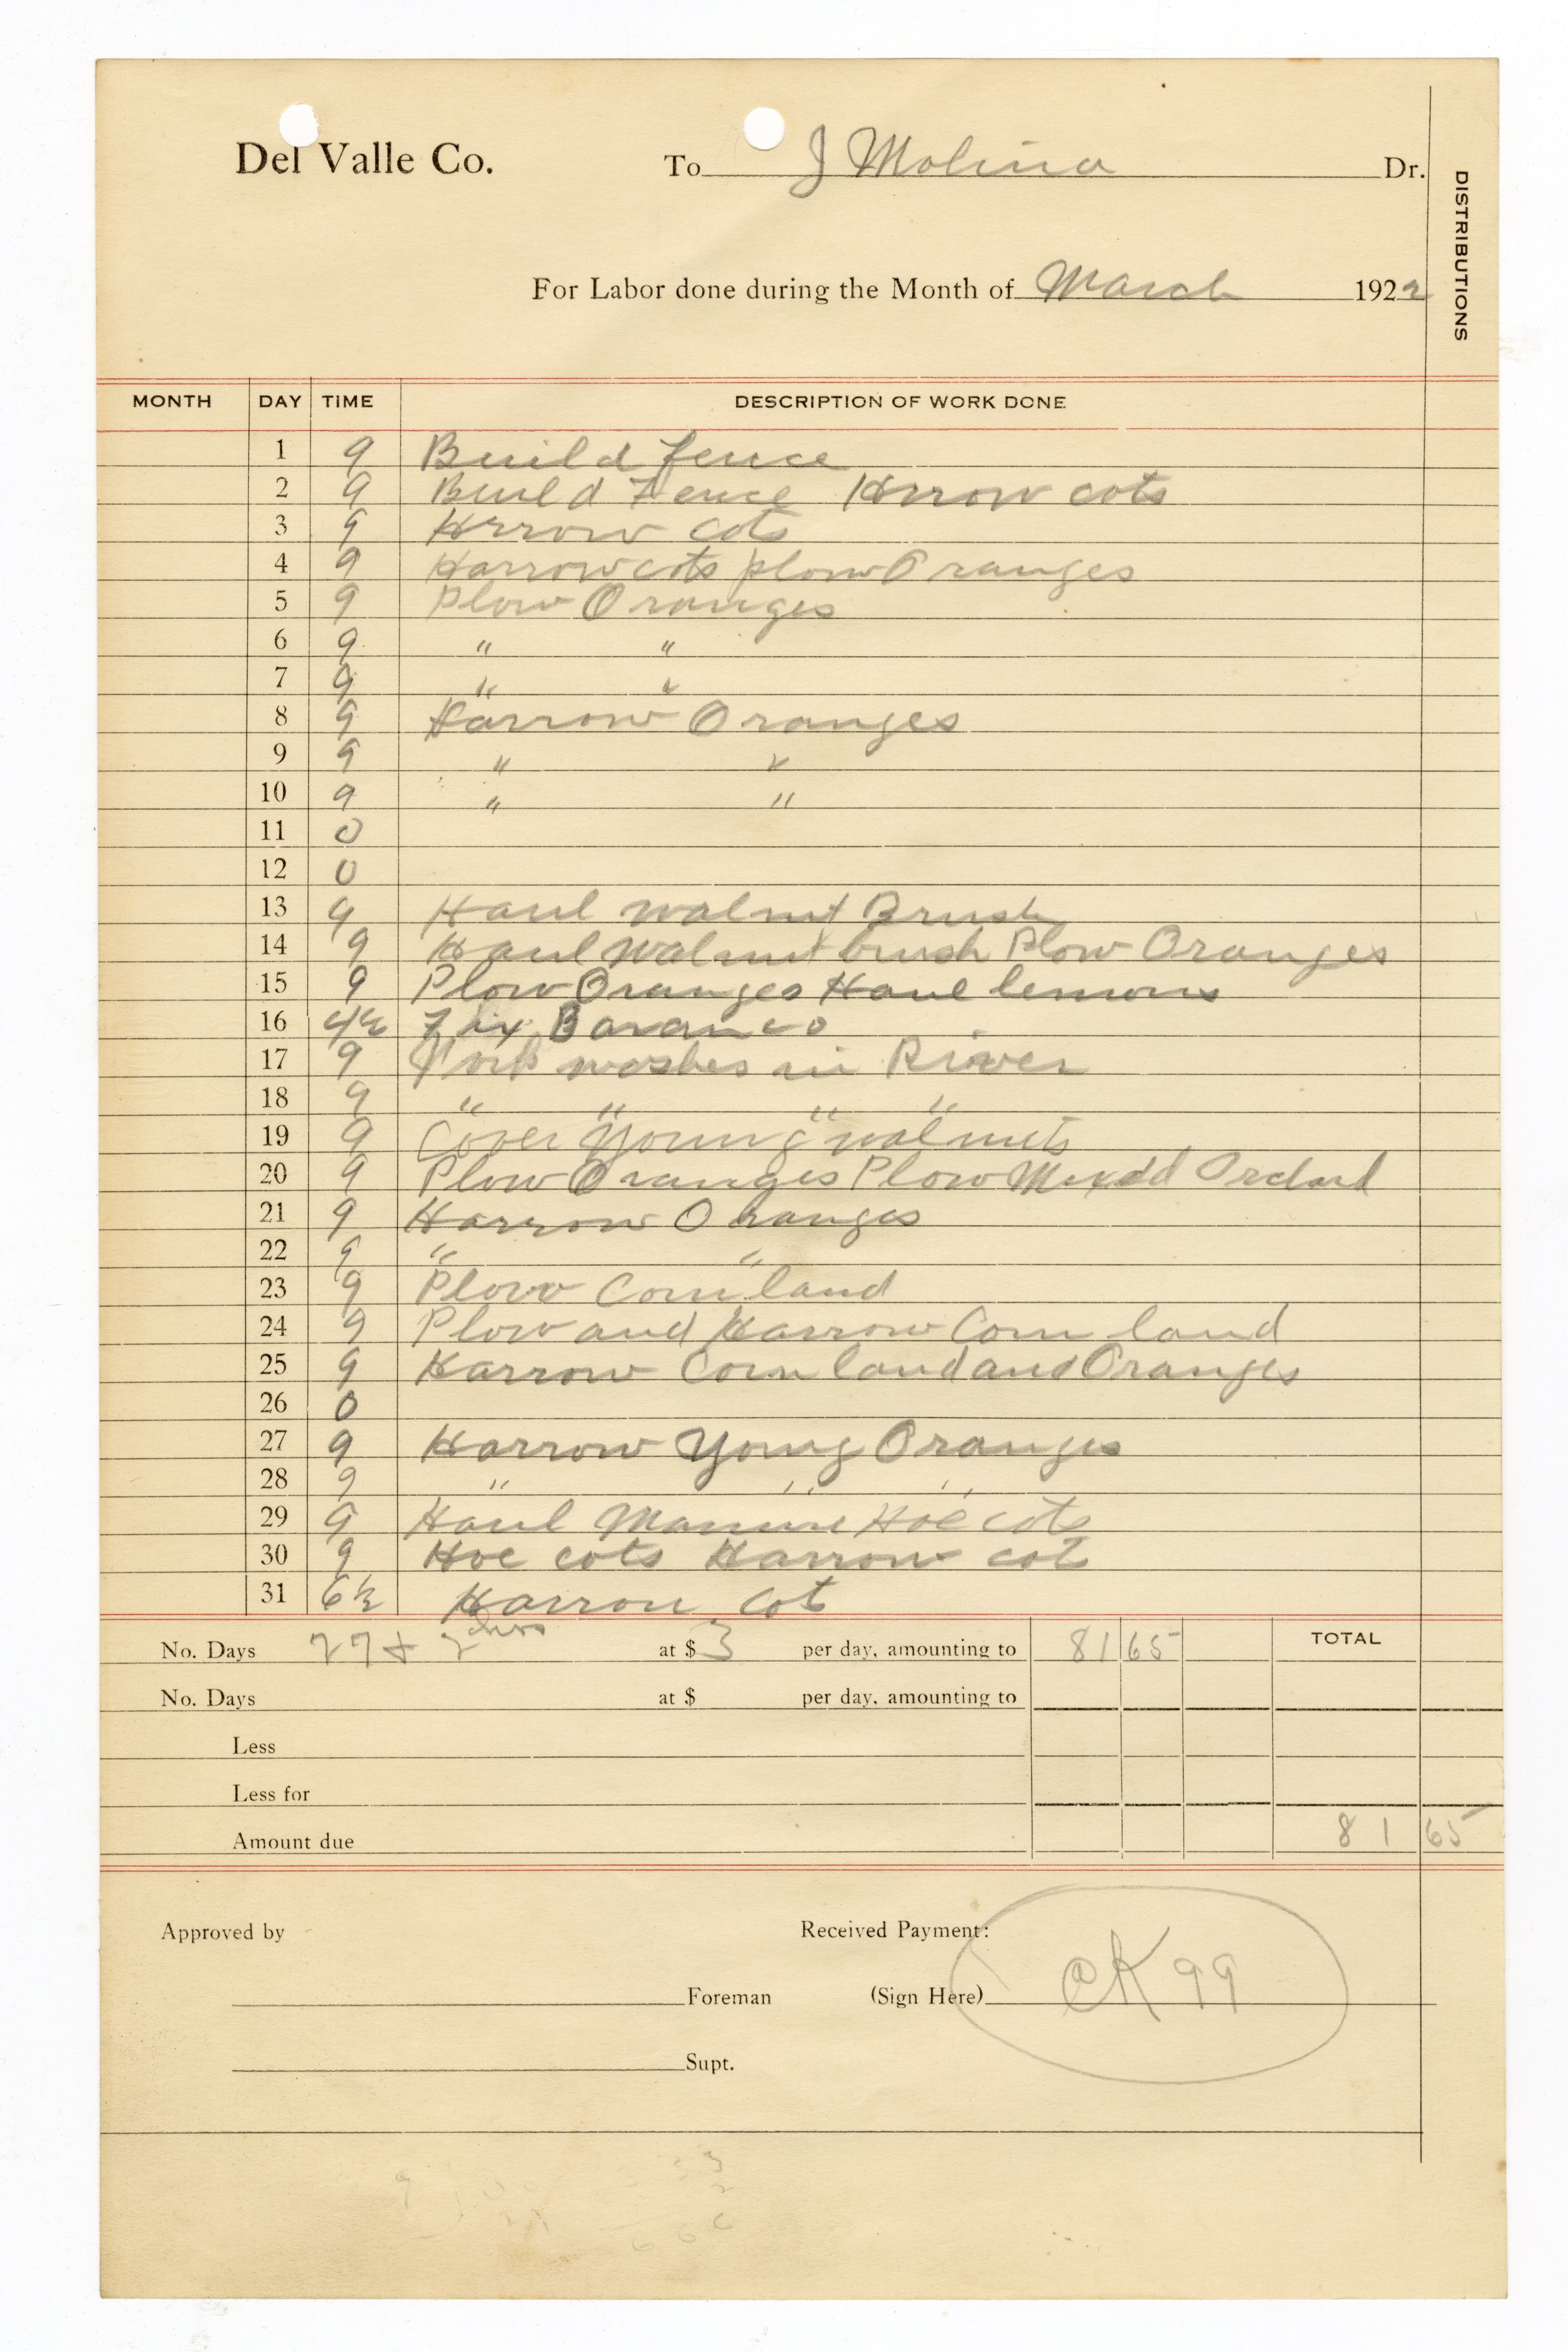 Del Valle Co. To J Molina Dr.
DISTRIBUTIONS
For Labor done during the Month of March 1922
MONTH DAY TIME DESCRIPTION OF WORK DONE
1 9 Build fence
2 9 Build Fence Harrow cots
3 9 Harrow cots
4 9 Harrow cots plow Oranges
5 9 Plow Oranges
6 9 " "
7 9 " "
8 9 Harrow Oranges
9 9 " "
10 9 " "
11 0
12 0
13 9 Haul walnut Brush
14 9 Haul Walnut brush Plow Oranges
15 9 Plow Oranges Haul lemons
16 4½ Fix Baranco
17 9 Work washes in River
18 9 " " " "
19 9 Cover Young walnuts
20 9 Plow Oranges Plow Mixdd Orchard
21 9 Harrow Oranges
22 9 " "
23 9 Plow Corn land
24 9 Plow and Harrow Corn land
25 9 Harrow Corn land and Oranges
26 0
27 9 Harrow Young Oranges
28 9 " " "
29 9 Haul Manure Hoe cots
30 9 Hoe cots Harrow cots
31 6½ Harrow Cot
No. Days 27 & 2 hrs at $ 3 per day, amounting to 81 65 TOTAL
No. Days at $ per day, amounting to
Less
Less for
Amount due 81 65
Approved by Received Payment:
Foreman (Sign Here) CK 99
Supt.